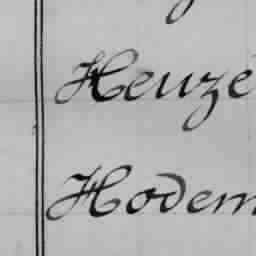 Heuzé
Hodem